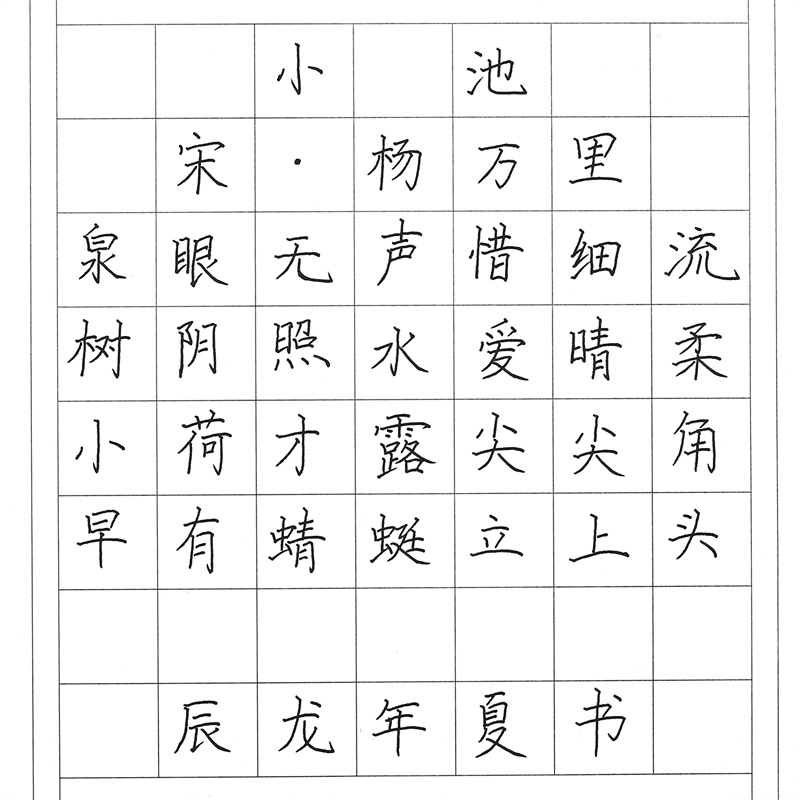 小池
宋·杨万里
泉眼无声惜细流
树阴照水爱晴柔
小荷才露尖尖角
早有蜻蜓立上头
辰龙年夏书